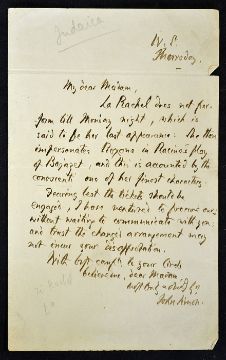 Judaica
W. P.
Thursday.
My dear Madam,
La Rachel does not per-
form till Monday night, which is
said to be her last appearance. She then
impersonates in Racine's play
of Bajazet, and this is accounted by the
one of her finest characters.
Fearing lest the tickets should be
engaged, I have ventured to procure one,
without waiting to communicate with you
and trust the changed arrangement may
not incur your disapprobation.
With best to your Circle
believe me, dear Madam
most
John